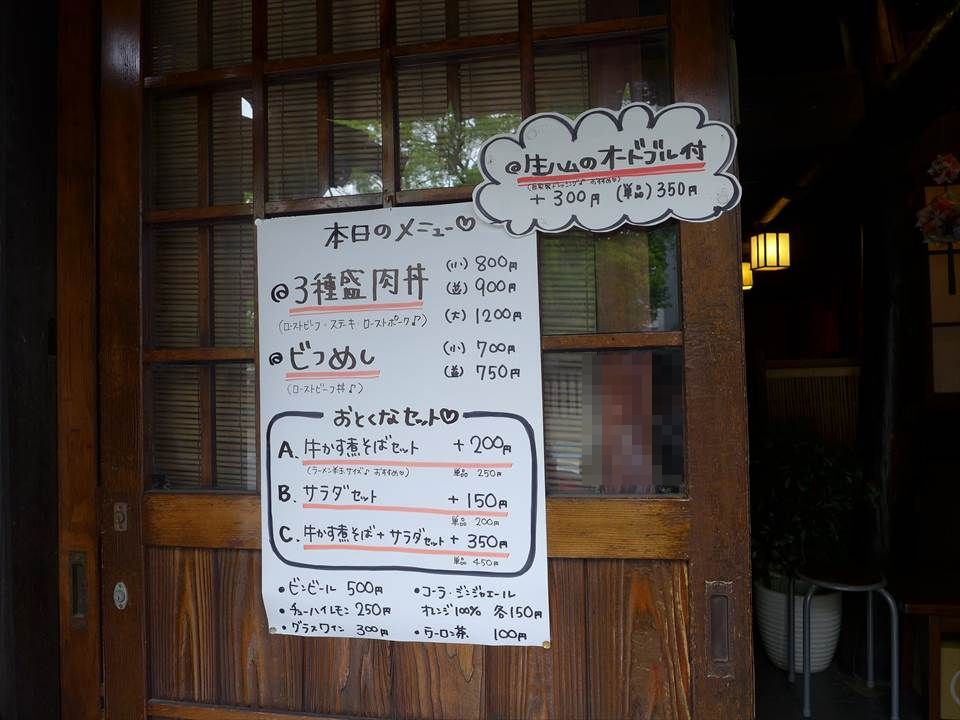 @生ハムのオードブル付
(自家製ドレッシング♪ おすすめ♡)
+300円 (単品)350円
本日のメニュー♡
@3種盛肉丼
(小)800円
(並)900円
(大)1200円
(ローストビーフ・ステーキ・ローストポーク♪)
@ビつめし
(小)700円
(並)750円
(ローストビーフ丼♪)
おとくなセット♡
A. 牛かす煮そばセット +200円
(ラーメン半玉サイズ♪ おすすめ♡) 単品 250円
B. サラダセット +150円
単品 200円
C. 牛かす煮そば+サラダセット+350円
単品 450円
・ビンビール 500円
・チューハイレモン 250円
・グラスワイン 300円
・コーラ・ジンジャエール
オレンジ100% 各150円
・ウーロン茶 100円